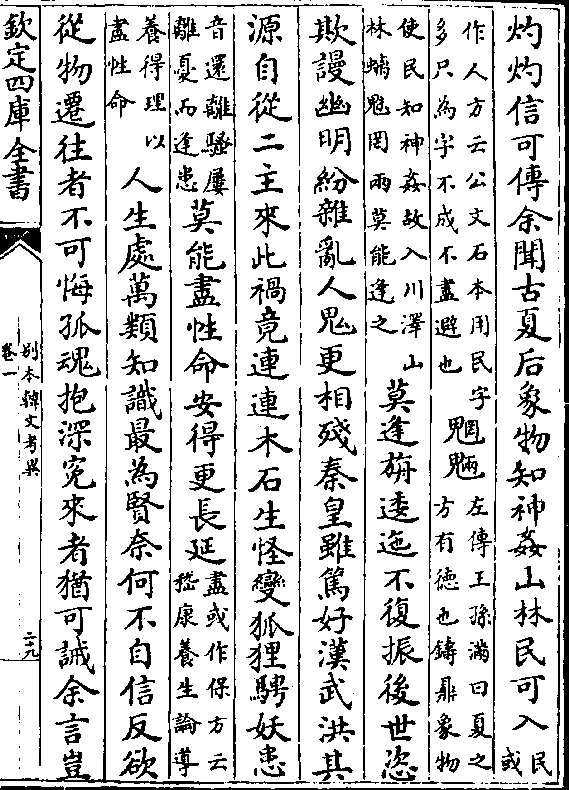 灼灼信可傳余聞古夏后象物知神姦山林民可入民或
作人方云公文石本用民字
多只為字不成不盡避也
魍魎
左傳王孫滿曰夏之
方有德也鑄鼎象物
使民知神姦故入川澤山
林螭魅罔兩莫能逢之
莫逢旃逶迤不復振後世恣
欺謾幽明紛雜亂人鬼更相殘秦皇雖篤好漢武洪其
源自從二主來此禍竟連連木石生怪變狐狸騁妖患
音還離騷屢
離憂而逢患
莫能盡性命安得更長延
盡或作保方云
嵇康養生論導
養得理以
盡性命
人生處萬類知識最為賢奈何不自信反欲
從物遷往者不可悔孤魂抱深冤來者猶可誡余言豈
欽定四庫全書
別本韓文考異
卷一
二九